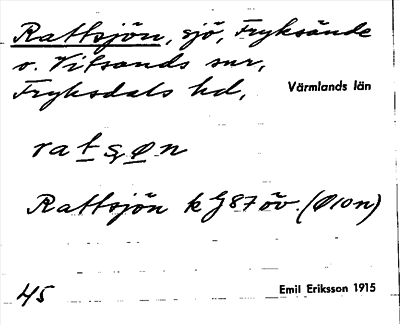 Rattsjön, sjö, Fryksände
o. Vitsands snr,
Fryksdals hd, Värmlands län
ratsøn
Rattsjön k G87 öv. (Ø10n)
45 Emil Eriksson 1915